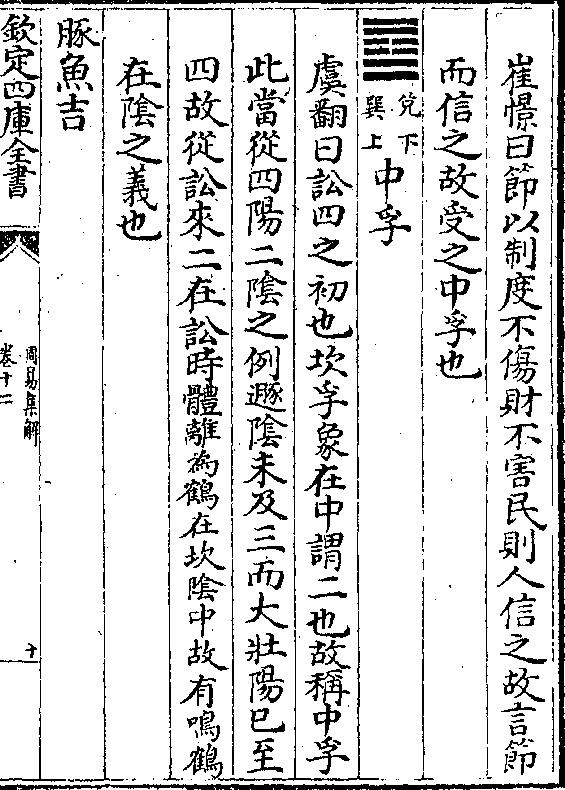 崔憬曰節以制度不傷財不害民則人信之故言節
而信之故受之中孚也
兌下
巽上
中孚
虞翻曰訟四之初也坎孚象在中謂二也故稱中孚
此當從四陽二隂之例遯隂未及三而大壯陽已至
四故從訟來二在訟時體離為鶴在坎隂中故有鳴鶴
在隂之義也
豚魚吉
欽定四庫全書
周易集解
卷十二
十